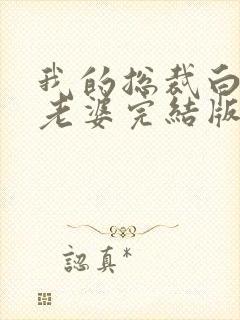 我的總裁白
老婆完結版
認真*